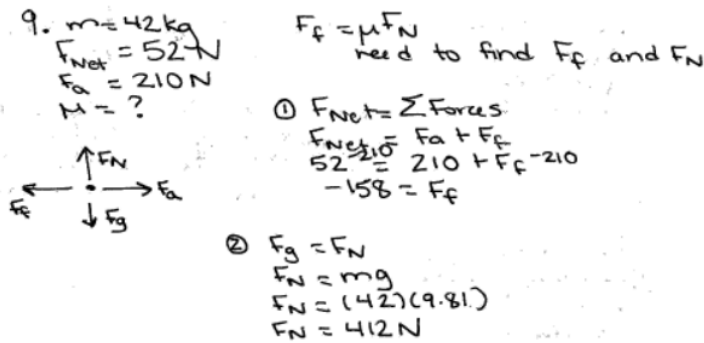 9. m = 42 kg
F_Net = 52 N
F_a = 210 N
μ = ?
F_f = μF_N
need to find F_f and F_N
① F_Net = Σ Forces
F_Net = F_a + F_f
52 -210 = 210 + F_f -210
-158 = F_f
F_N
F_f
F_a
F_g
② F_g = F_N
F_N = mg
F_N = (42)(9.81)
F_N = 412 N